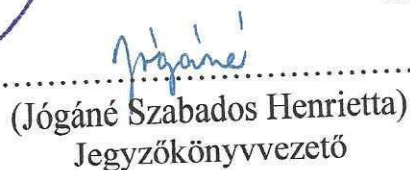 Jógáné
(Jógáné Szabados Henrietta)
Jegyzőkönyvvezető